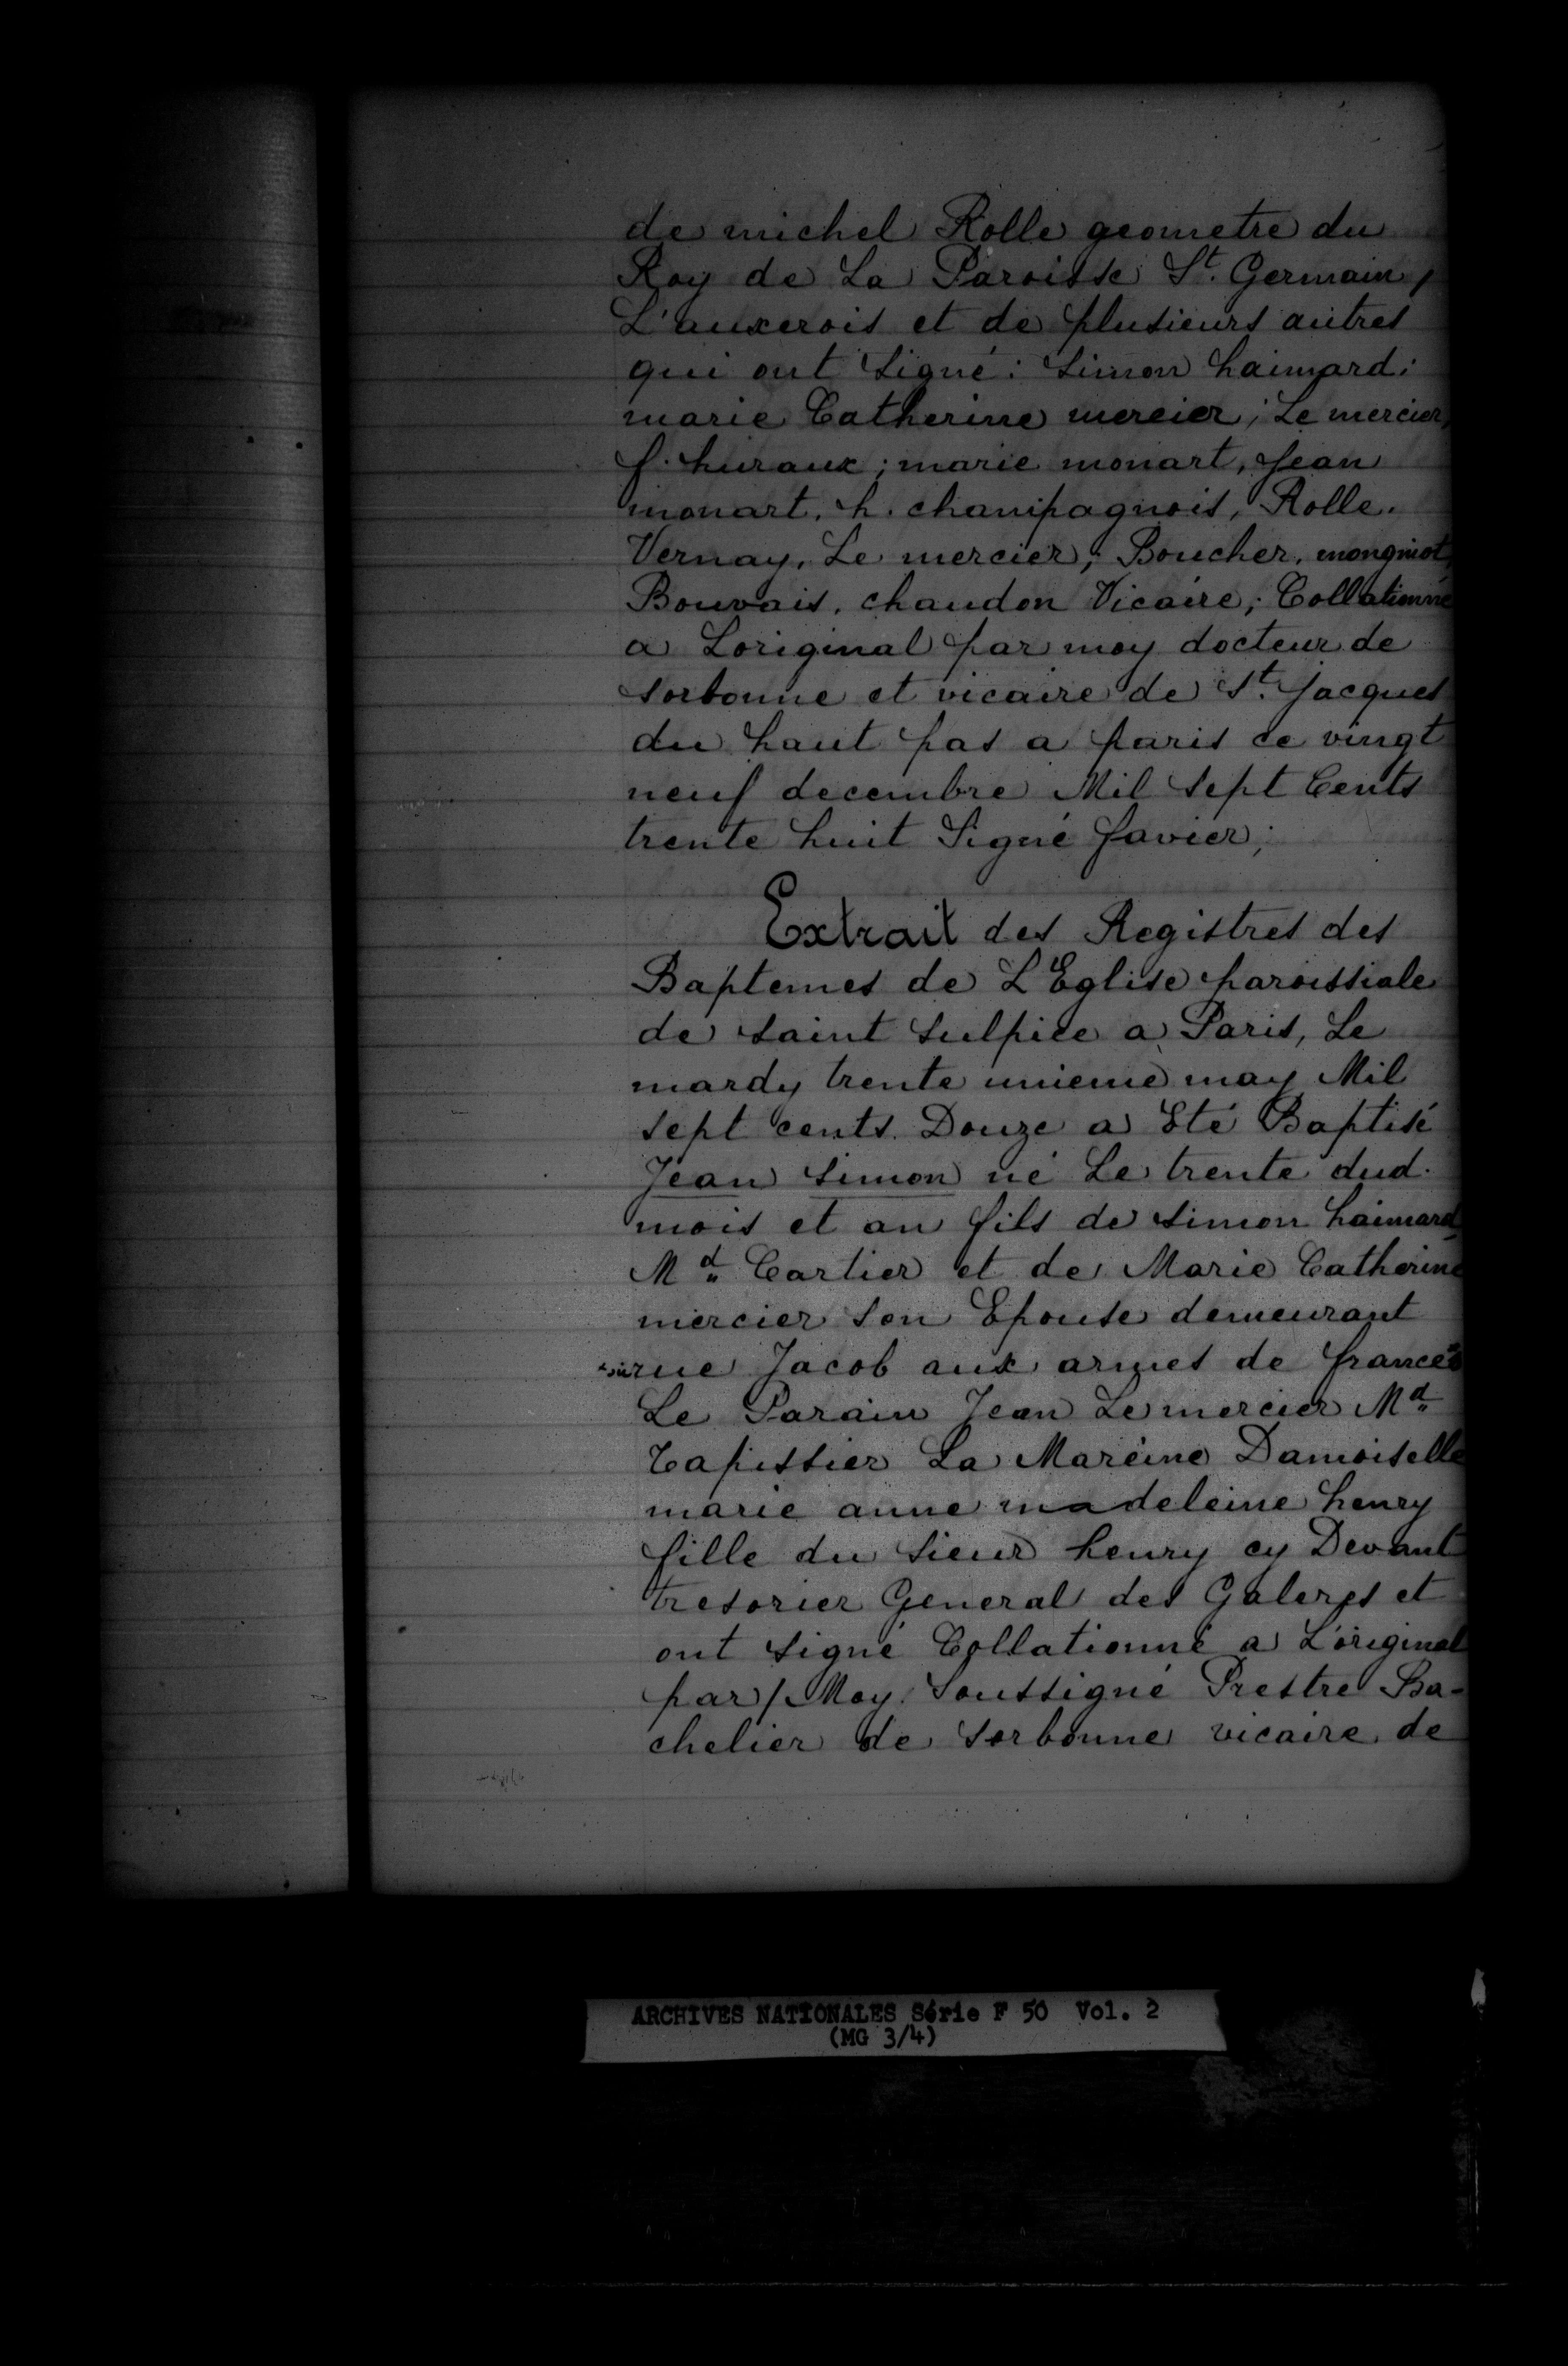 de michel Rolle geometre du
Roy de La Paroisse St. Germain,
L'auxerois et de plusieurs autres
qui ont signé: simon haimard;
marie Catherine mercier; Le mercier,
f. huraux; marie monart, Jean
monart, h. champagnois, Rolle.
Vernay, Le mercier; Boucher, mongniot,
Bouvais, chaudon Vicaire; Collationné
a Loriginal par moy docteur de
sorbonne et vicaire de St. Jacques
du haut pas a paris ce vingt
neuf decembre Mil sept Cents
trente huit Signé favier;
Extrait des Registres des
Baptemes de L'Eglise paroissiale
de saint sulpice a Paris, Le
mardy trente unieme may Mil
sept cents Douze a Eté Baptisé
Jean simon né Le trente dud.
mois et an fils de simon haimard
Md. Cartier et de Marie Catherine
mercier son Epouse demeurant
rue Jacob aux armes de france
Le Parain Jean Le mercier Md.
Tapissier La Mareine Damoiselle
marie anne madeleine henry
fille du sieur henry cy Devant
tresorier General des Galeres et
ont signé Collationné a L'original
par/Moy soussigné Prestre Ba-
chelier de sorbonne vicaire de
ARCHIVES NATIONALES Série F 50 Vol. 2
(MG 3/4)